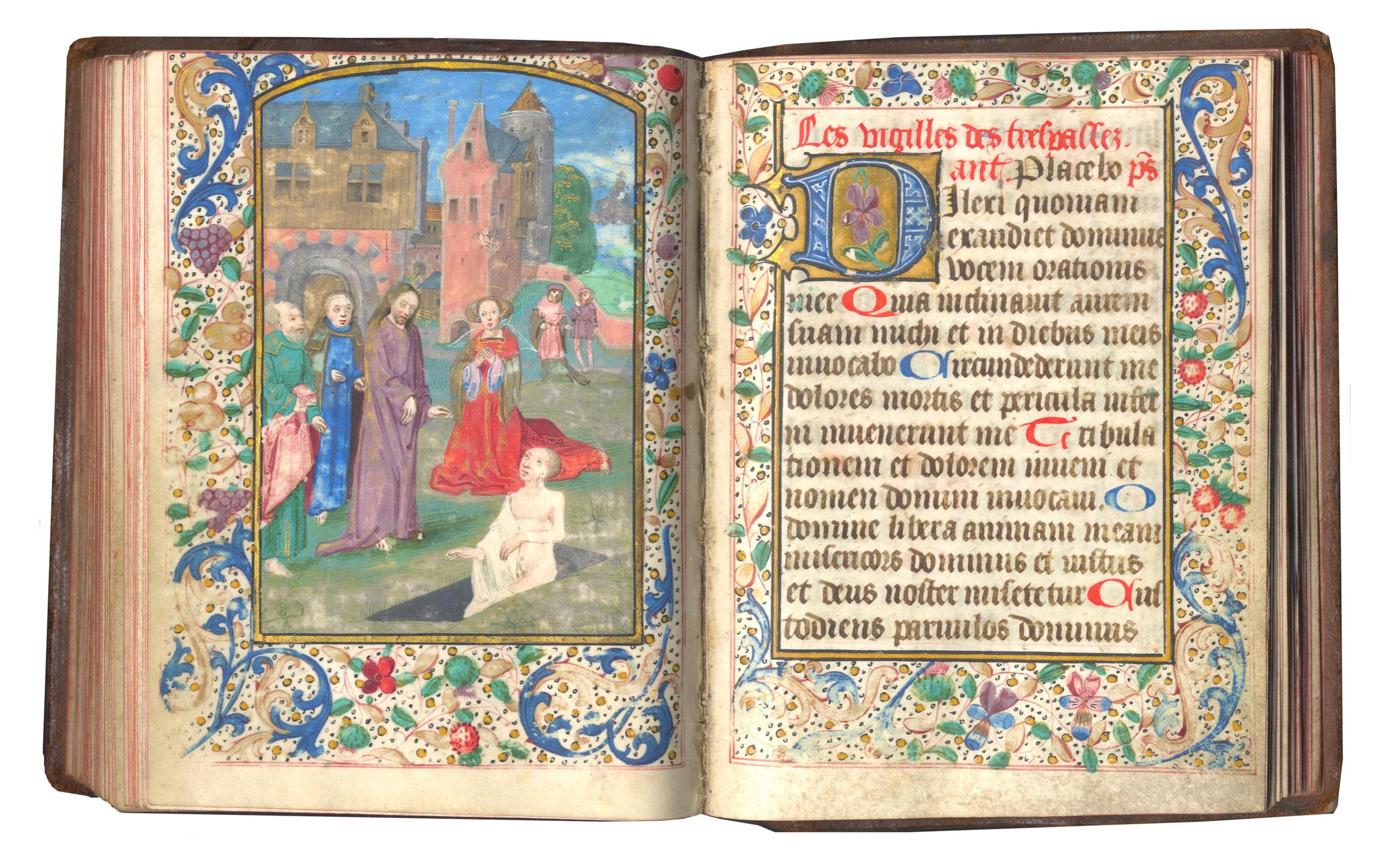 Les vigilles des trespassez.
ant. Placebo ps
Dilexi quoniam
exaudiet dominus
vocem orationis
mee Quia inclinauit aurem
suam michi et in diebus meis
inuocabo Circumdederunt me
dolores mortis et pericula infer
ni inuenerunt me Tribula
tionem et dolorem inueni et
nomen domini inuocaui. O
domine libera animam meam
misericors dominus et iustus
et deus noster miseretur Cus
todiens paruulos dominus